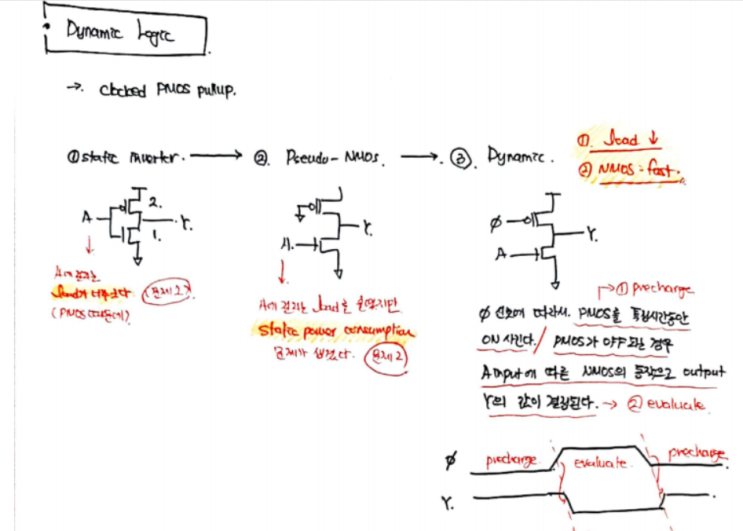 Dynamic Logic
→ clocked PMOS pullup.
① static inverter. → ② Pseudo-NMOS. → ③ Dynamic.
① load ↓
② NMOS : fast.
A
2.
1.
Y.
A에 걸리는
load가 너무 크다 (문제1)
(PMOS 때문에?)
A.
Y.
A에 걸리는 load를 줄였지만
static power consumption
문제가 생겼다. (문제2)
φ
A
Y.
→ ① precharge
φ 신호에 따라서. PMOS를 특정시간동안
ON 시킨다. / PMOS가 OFF 되는 경우
A input에 따른 NMOS의 동작으로 output
Y의 값이 결정된다. → ② evaluate
φ precharge evaluate. precharge
Y.